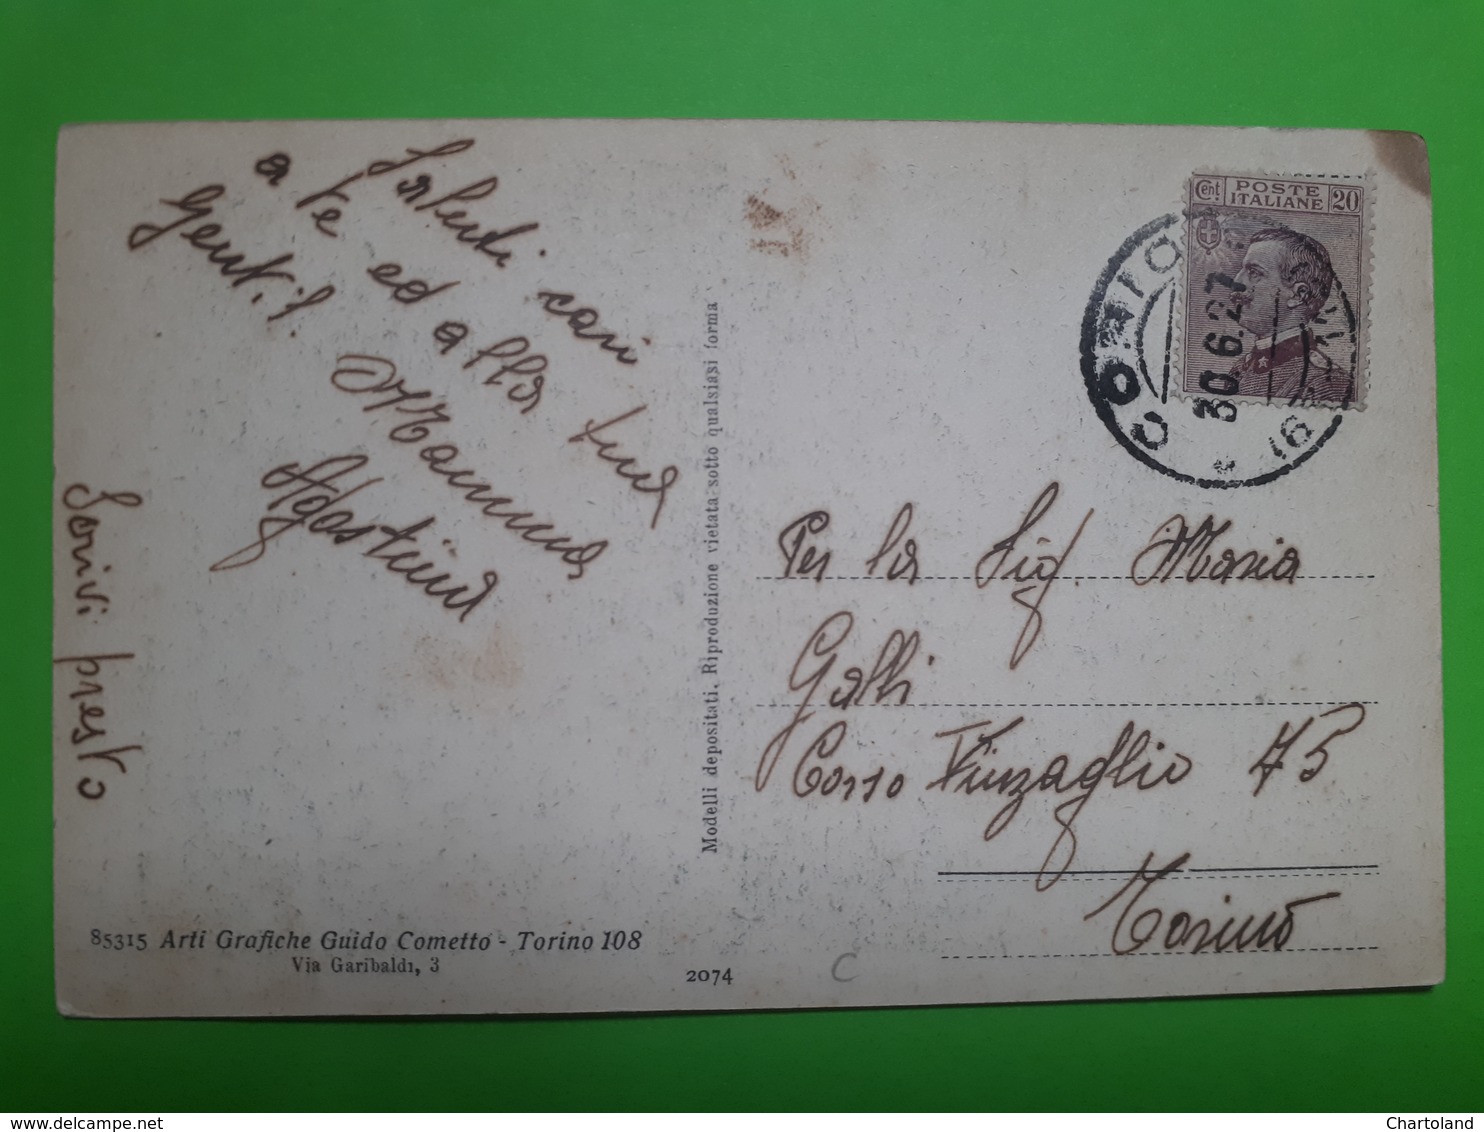 Saluti cari
a te ed alla tua
gentil.
Mamma
Agostina
Scrivi presto
Modelli depositati. Riproduzione vietata sotto qualsiasi forma
85315 Arti Grafiche Guido Cometto - Torino 108
Via Garibaldi, 3
2074
C
Cent POSTE ITALIANE 20
30.6.27
Per la Sig. Maria
Galli
Corso Vinzaglio 75
Torino
Chartoland
www.delcampe.net